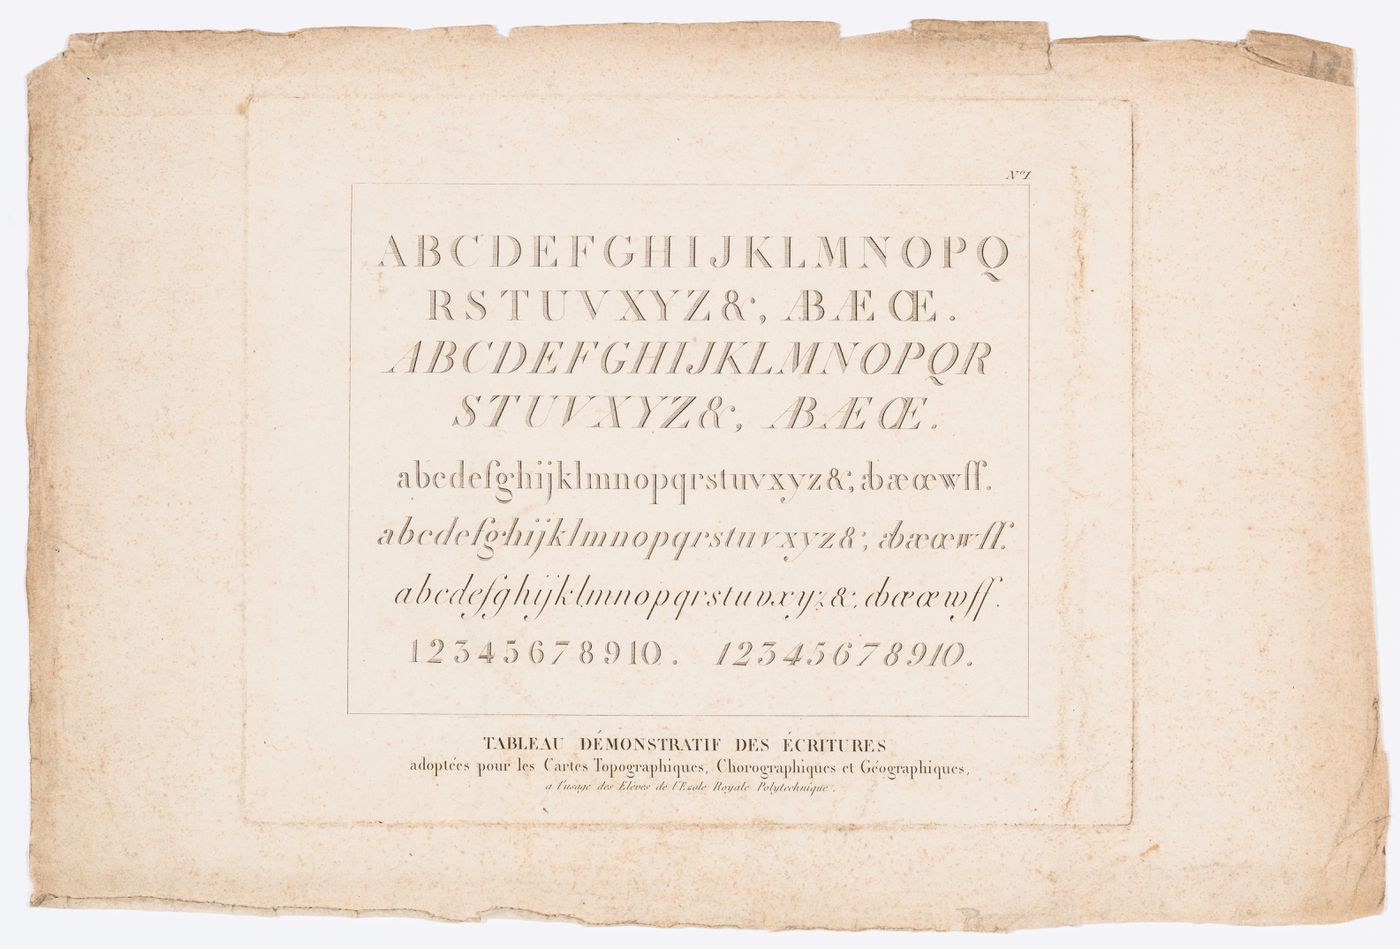 Nº 1
ABCDEFGHIJKLMNOPQ
RSTUVXYZ&; ÆB Æ Œ.
ABCDEFGHIJKLMNOPQR
STUVXYZ&; ÆB Æ Œ.
abcdefghijklmnopqrstuvxyz&; æbæœwſſ.
abcdefghijklmnopqrstuvxyz&; æbæœwſſ.
abcdefghijklmnopqrstuvxyz&; æbæœwſſ.
12345678910. 12345678910.
TABLEAU DÉMONSTRATIF DES ÉCRITURES
adoptées pour les Cartes Topographiques, Chorographiques et Géographiques,
a l'usage des Elèves de l'Ecole Royale Polytechnique.